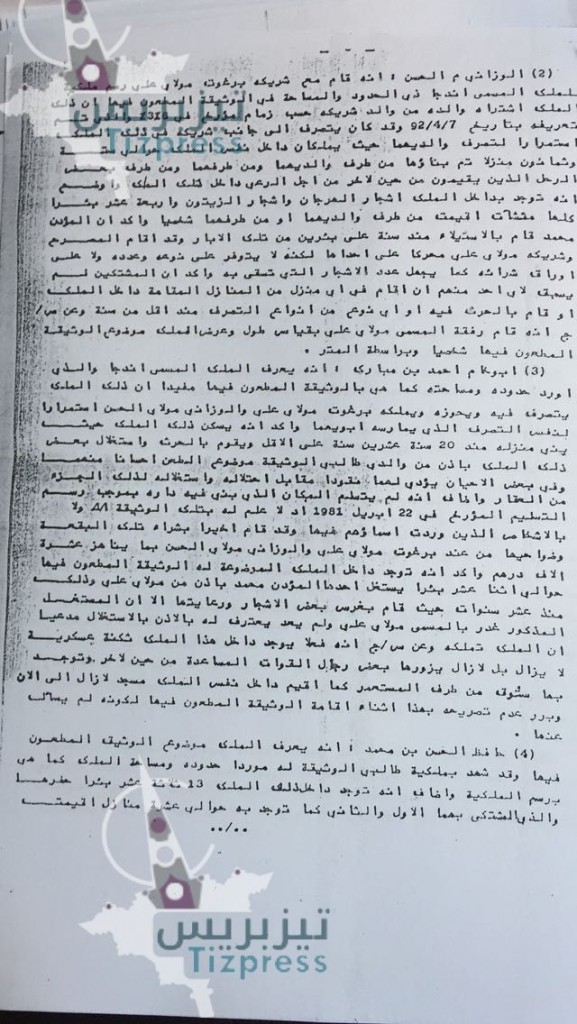 (2) الوزاني م الحسن : انه قام مع شريكه برغوت مولاي علي رسم ملكية
للملك المسمى اندجا ذي الحدود والمساحة في الوثيقة المطعون فيها ان ذلك
الملك اشتراه والده من والد شريكه حسب زمام مؤرخ في
تعريفه بتاريخ 92/4/7 وقد كان يتصرف الى جانب شريكه في ذلك الملك
استمرارا لتصرف والديهما حيث يملكان داخل
وثمانون منزلا تم بناؤها من طرف والديهما ومن طرفهما ومن طرف بعض
الرحل الذين يقيمون من حين لاخر من اجل الرعي داخل ذلك الملك واوضح
انه توجد بداخل الملك اشجار العرجان واشجار الزيتون واربعة عشر بئرا
كلها منشئات اقيمت من طرف والديهما او من طرفهما شخصيا واكد ان المؤدن
محمد قام بالاستيلاء مند سنة على بئرين من تلك الابار وقد اقام المصرح
وشريكه مولاي علي محركا على احداها لكنه لا يتوفر على نوعه وعدده ولا على
اوراق شرائه كما يجهل عدد الاشجار التي تسقى به واكد ان المشتكين لم
يسبق لاي احد منهم ان اقام في اي منزل من المنازل المقامة داخل الملك
او قام بالحرث فيه او اي نوع من انواع التصرف مند اقل من سنة وعن س/
ج انه قام رفقة المسمى مولاي علي بقياس طول وعرض الملك موضوع الوثيقة
المطعون فيها شخصيا وبواسطة المتر .
(3) ابوكام احمد بن مبارك : انه يعرف الملك المسمى اندجا والذي
اورد حدوده ومساحته كما هي بالوثيقة المطعون فيها مفيدا ان ذلك الملك
يتصرف فيه ويحوزه ويملكه برغوت مولاي علي والوزاني مولاي الحسن استمرارا
لنفس التصرف الذي يمارسه ابويهما واكد انه يسكن ذلك الملك حيث
بنى منزله مند 20 سنة عشرين سنة على الاقل ويقوم بالحرث واستغلال بعض
ذلك الملك باذن من والدي طالبي الوثيقة موضوع الطعن احسانا منهما
وفي بعض الاحيان يؤدي لهما نقودا مقابل احتلاله واستغلاله لذلك الجزء
من العقار واضاف انه لم يتسلم المكان الذي بنى فيه داره بموجب رسم
التسليم المؤرخ في 22 ابريل 1981 اد لا علم له بتلك الوثيقة ولا
بالاشخاص الذين وردت اسماؤهم فيها وقد قام اخيرا بشراء تلك البقعة
وضواحيها من عند برغوت مولاي علي والوزاني مولاي الحسن بما يناهز عشرة
الاف درهم واكد انه توجد داخل الملك الموضوعة له الوثيقة المطعون فيها
حوالي اثنا عشر بئرا يستغل احدها المؤدن محمد باذن من مولاي علي وذلك
منذ عشر سنوات حيث قام بغرس بعض الاشجار ورعايتها الا ان المستغل
المذكور غدر بالمسمى مولاي علي ولم يعد يعترف له بالاذن بالاستغلال مدعيا
ان الملك تملكه وعن س/ج انه فعلا يوجد داخل هذا الملك ثكنة عسكرية
لا يزال بل لازال يزورها بعض رجال القوات المساعدة من حين لاخر وتوجد
بها من طرف المستعمر كما اقيم داخل نفس الملك مسجد لازال الى الان
وبرر عدم تصريحه بهذا اثناء اقامة الوثيقة المطعون فيها لكونه لم يسأل
عنها .
(4) حافظ الحسن بن محمد : انه يعرف الملك موضوع الوثيقة المطعون
فيها وقد شهد بملكية طالبي الوثيقة له موردا حدوده ومساحة الملك كما هي
برسم الملكية واضاف انه توجد داخل ذلك الملك 13 ثلاثة عشر بئرا حفرها
والذي المشتكى بهما الاول والثاني كما توجد به حوالي عشرة منازل اقيمت
../..
تيزبريس
Tizpress
تيزبريس
Tizpress